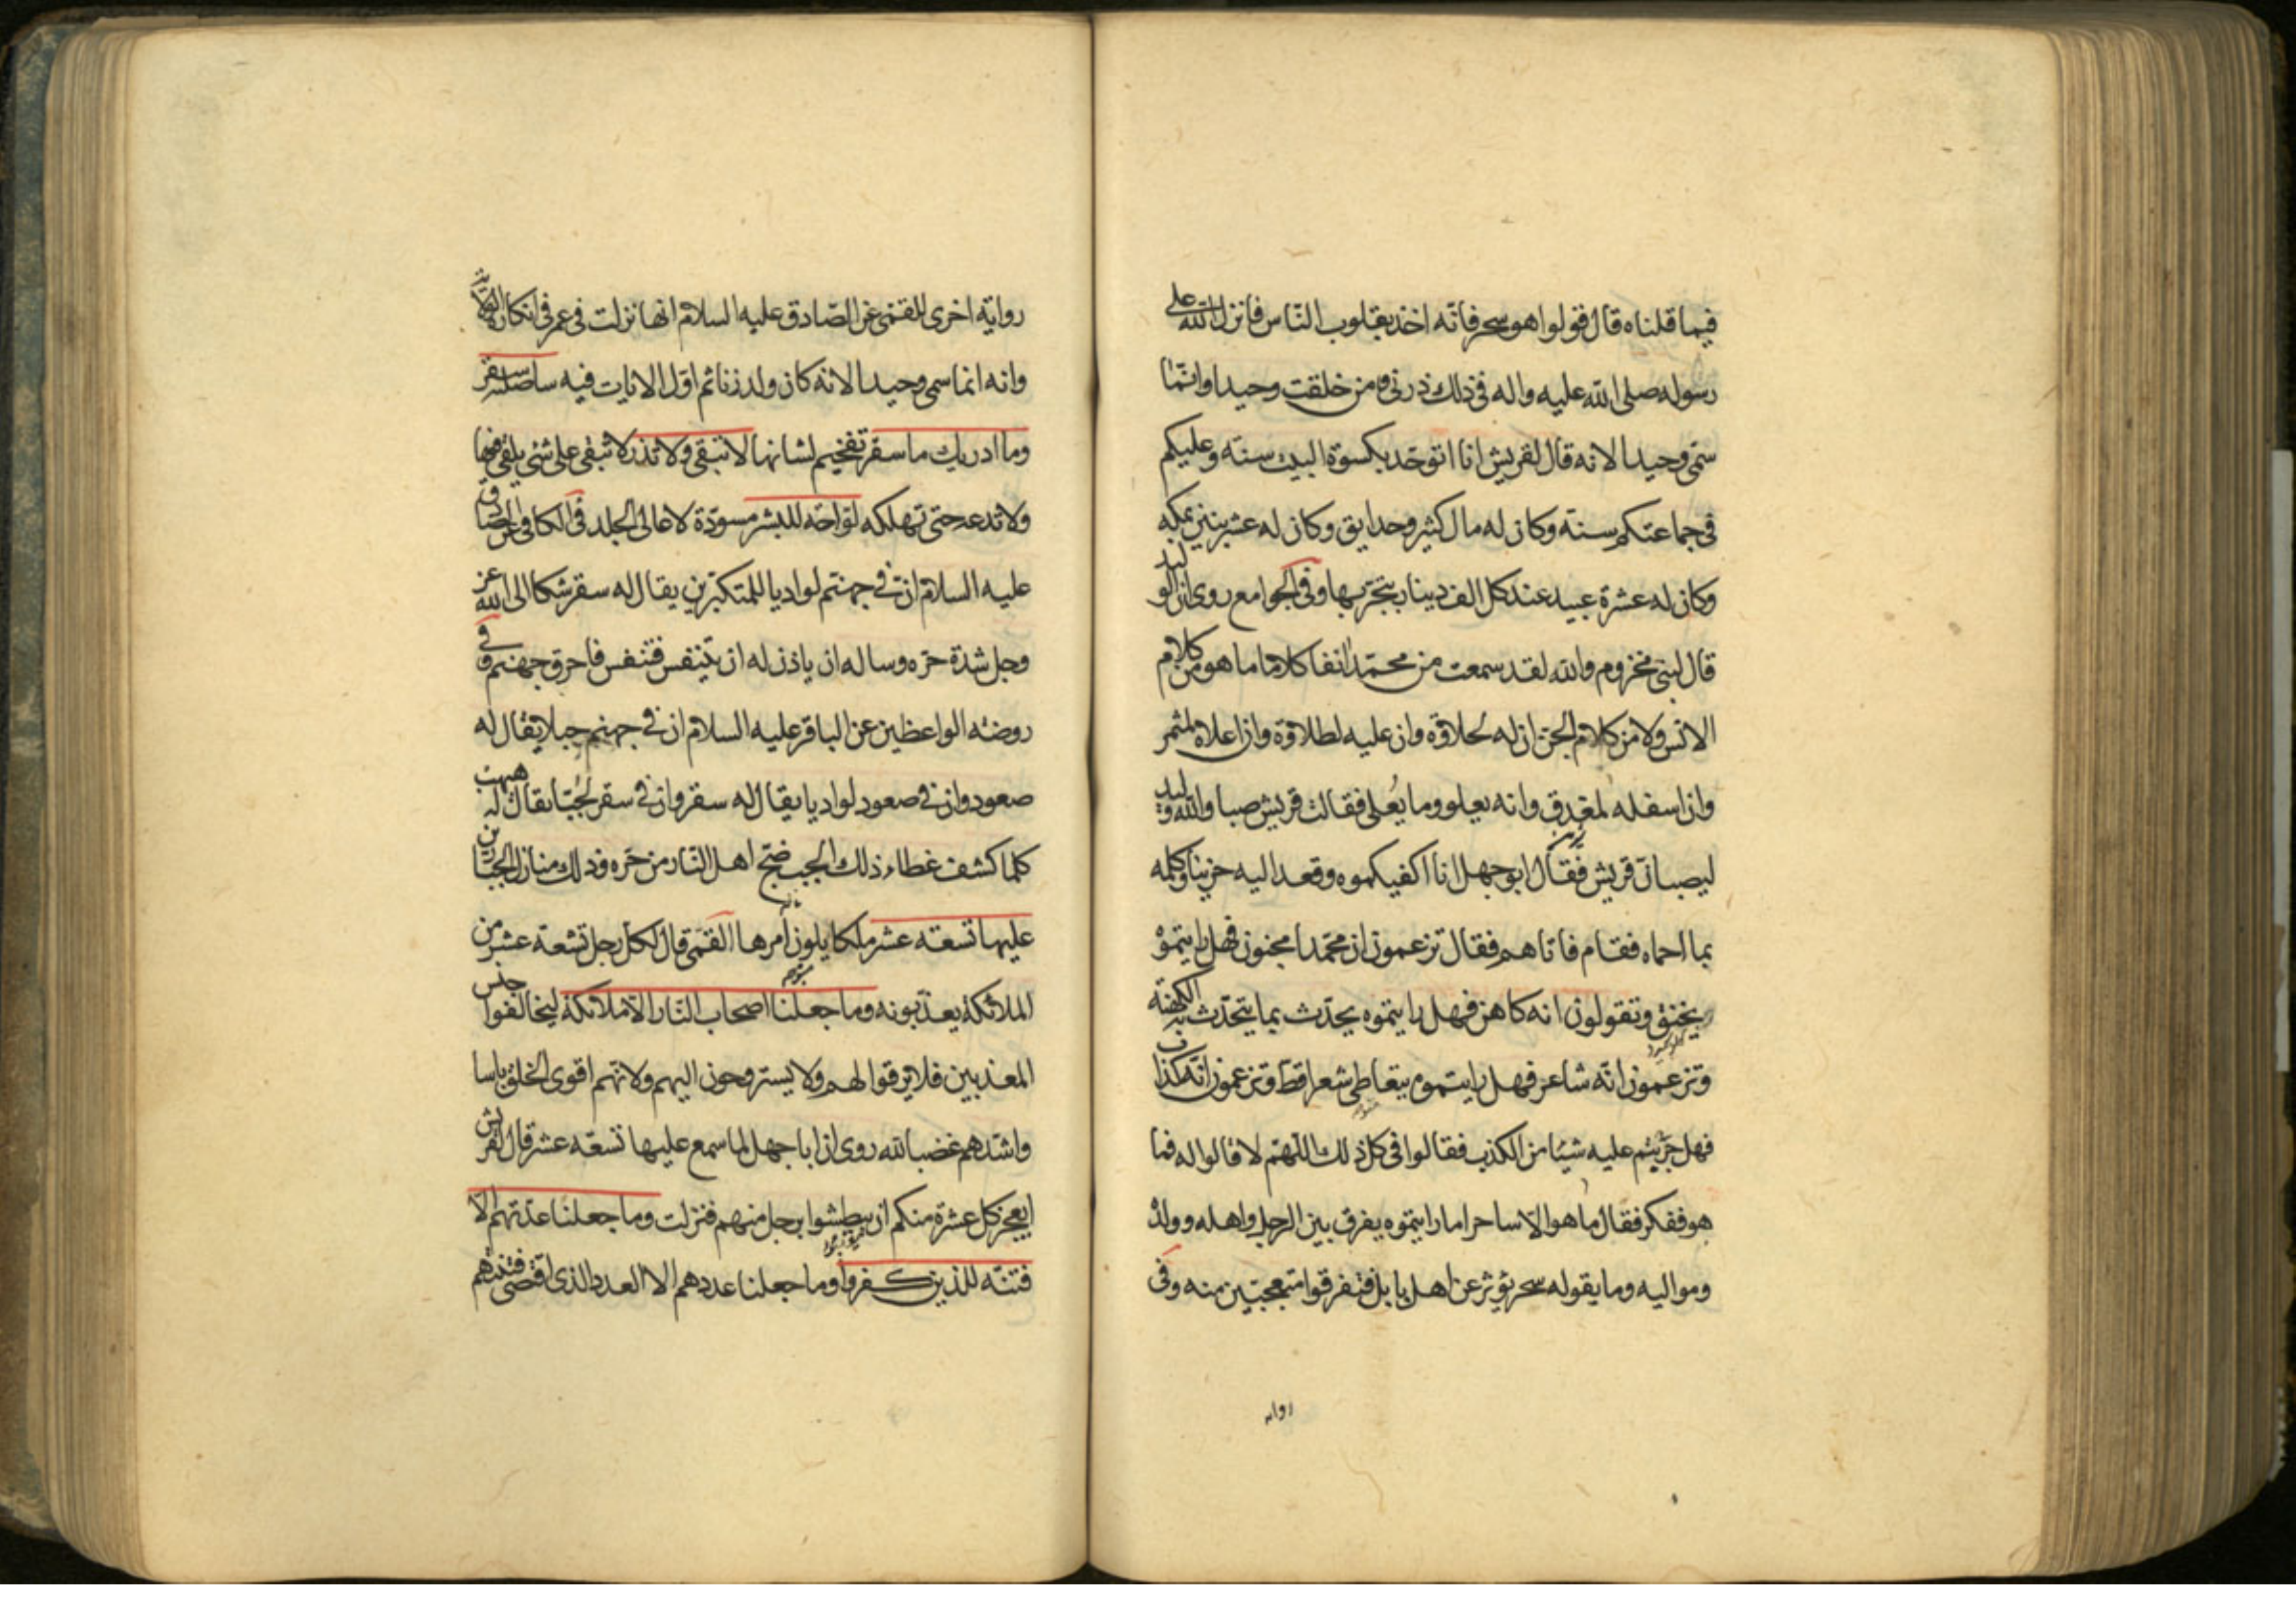 فيما قلناه قال قولوا هو سحر فانّه اخذ بقلوب النّاس فانزل الله على
رسوله صلى الله عليه واله فى ذلك ذرنى ومن خلقت وحيدا وانّما
سمّى وحيدا لانه قال لقريش انا اتوحّد بكسوة البيت سنة وعليكم
فى جماعتكم سنة وكان له مال كثير وحدايق وكان له عشر بنين بمكه
وكان له عشرة عبيد عند كل الف دينار يتجّر بها وفى الجوامع روى ان الوليد
قال لبنى مخزوم والله لقد سمعت من محمّد انفا كلاما ما هو من كلام
الانس ولا من كلام الجن ان له لحلاوة وان عليه لطلاوة وان اعلاه لمثمر
وان اسفله لمغدق وانه يعلو وما يُعلى فقالت قريش صبا والله الوليد
ليصبانّ قريش فقال ابو جهل انا اكفيكموه وقعد اليه حزينا وكلمه
بما احماه فقام فاتاهم فقال تزعمون ان محمّدا مجنون فهل رايتموه
يخنق وتقولون انه كاهن فهل رايتموه يحدّث بما يتحدّث به الكهنة
وتزعمون انّه شاعر فهل رايتموه يتعاطى شعرا قطّ وتزعمون انّه كذاب
فهل جرّبتم عليه شيئا من الكذب فقالوا فى كل ذلك اللّهمّ لا قالوا له فما
هو ففكر فقال ما هو الّا ساحر اما رايتموه يفرق بين الرجل واهله وولده
ومواليه وما يقوله سحر يؤثر عن اهل بابل فتفرقوا متعجبين منه وفى
روايه اخرى للقمّى عن الصّادق عليه السلام انها نزلت فى عمر فى انكاره الولاية
وانه انما سمى وحيدا لانه كان ولد زنا ثم اوّل الايات فيه ساصليه سقر
وما ادريك ما سقر تفخيم لشانها لا تبقى ولا تذر لا تبقى على شئ يلقى فيها
ولا تدعه حتى تهلكه لوّاحة للبشر مسودّة لاعالى الجلد فى الكافى عن الصادق
عليه السلام انّ فى جهنّم لواديا للمتكبّرين يقال له سقر شكا الى الله عز
وجل شدّة حرّه وساله ان ياذن له ان يتنفس فتنفس فاحرق جهنم وفى
روضة الواعظين عن الباقر عليه السلام ان فى جهنم جبلا يقال له
صعود وان فى صعود لواديا يقال له سقر وان فى سقر لجُبّا يقال له هبهب
كلما كشف غطاء ذلك الجب ضجّ اهل النّار من حرّه وذلك منازل الجبّارين
عليها تسعة عشر ملكا يلون امرها القمّى قال لكل رجل تسعة عشر من
الملائكة يعذّبونه وما جعلنا اصحاب النّار الّا ملائكة ليخالفوا جنس
المعذبين فلا يرقوا لهم ولا يستروحون اليهم ولانهم اقوى الخلق باسا
واشدّهم غضبا لله روى ان ابا جهل لما سمع عليها تسعة عشر قال لقريش
ايعجز كل عشرة منكم ان يبطشوا برجل منهم فنزلت وما جعلنا عدّتهم الّا
فتنة للذين كفروا وما جعلنا عددهم الا العدد الذى اقتضى فتنتهم